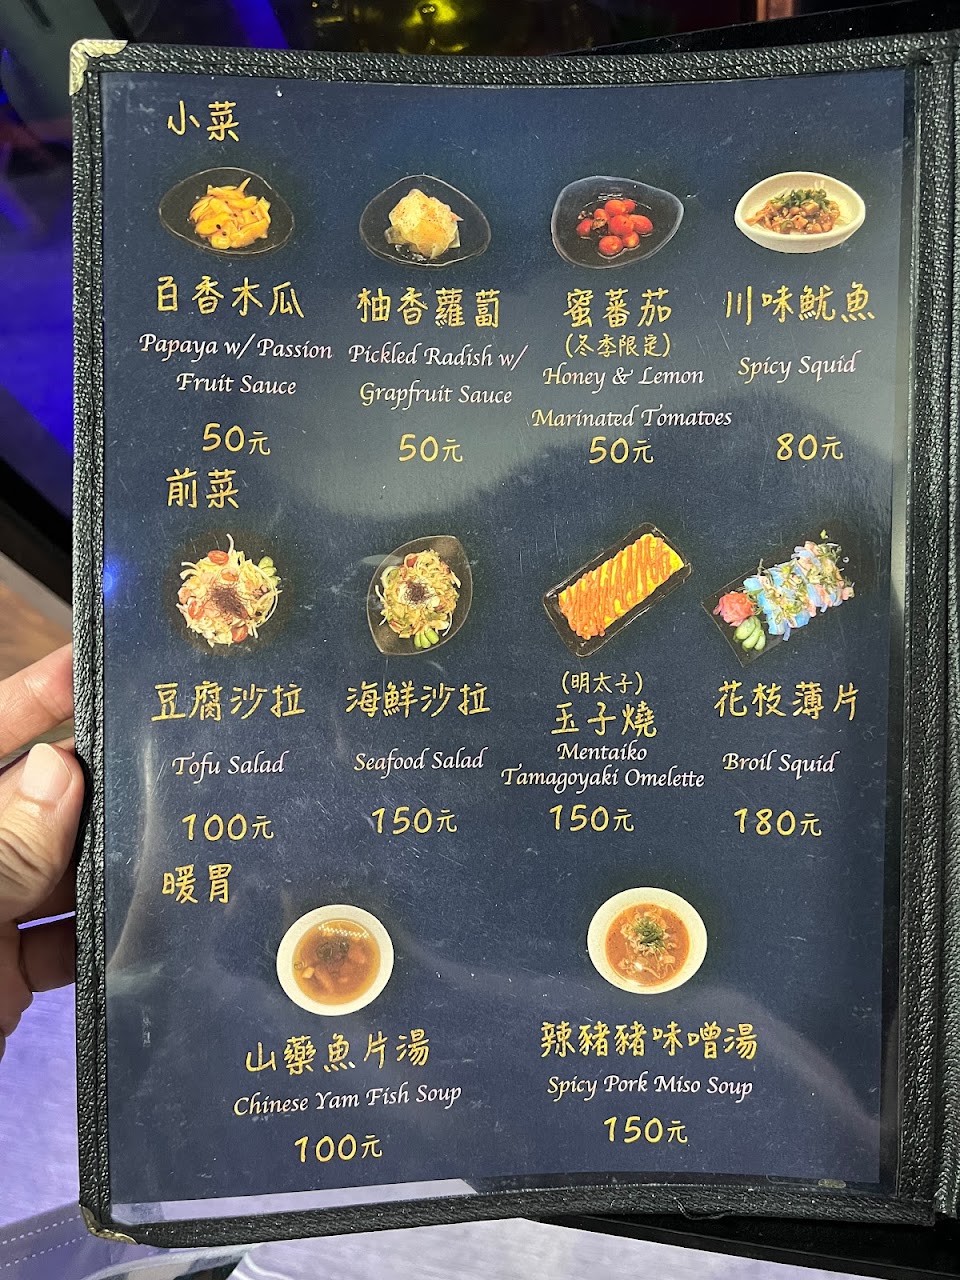 小菜
百香木瓜
Papaya w/ Passion
Fruit Sauce
50元
柚香蘿蔔
Pickled Radish w/
Grapfruit Sauce
50元
蜜蕃茄
(冬季限定)
Honey & Lemon
Marinated Tomatoes
50元
川味魷魚
Spicy Squid
80元
前菜
豆腐沙拉
Tofu Salad
100元
海鮮沙拉
Seafood Salad
150元
(明太子)
玉子燒
Mentaiko
Tamagoyaki Omelette
150元
花枝薄片
Broil Squid
180元
暖胃
山藥魚片湯
Chinese Yam Fish Soup
100元
辣豬豬味噌湯
Spicy Pork Miso Soup
150元